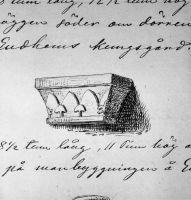 tum lång, 12½ tum hög
väggen söder om dörren
Kungsgård.
8½ tum lång, 11 tum hög o
på manbyggningen å